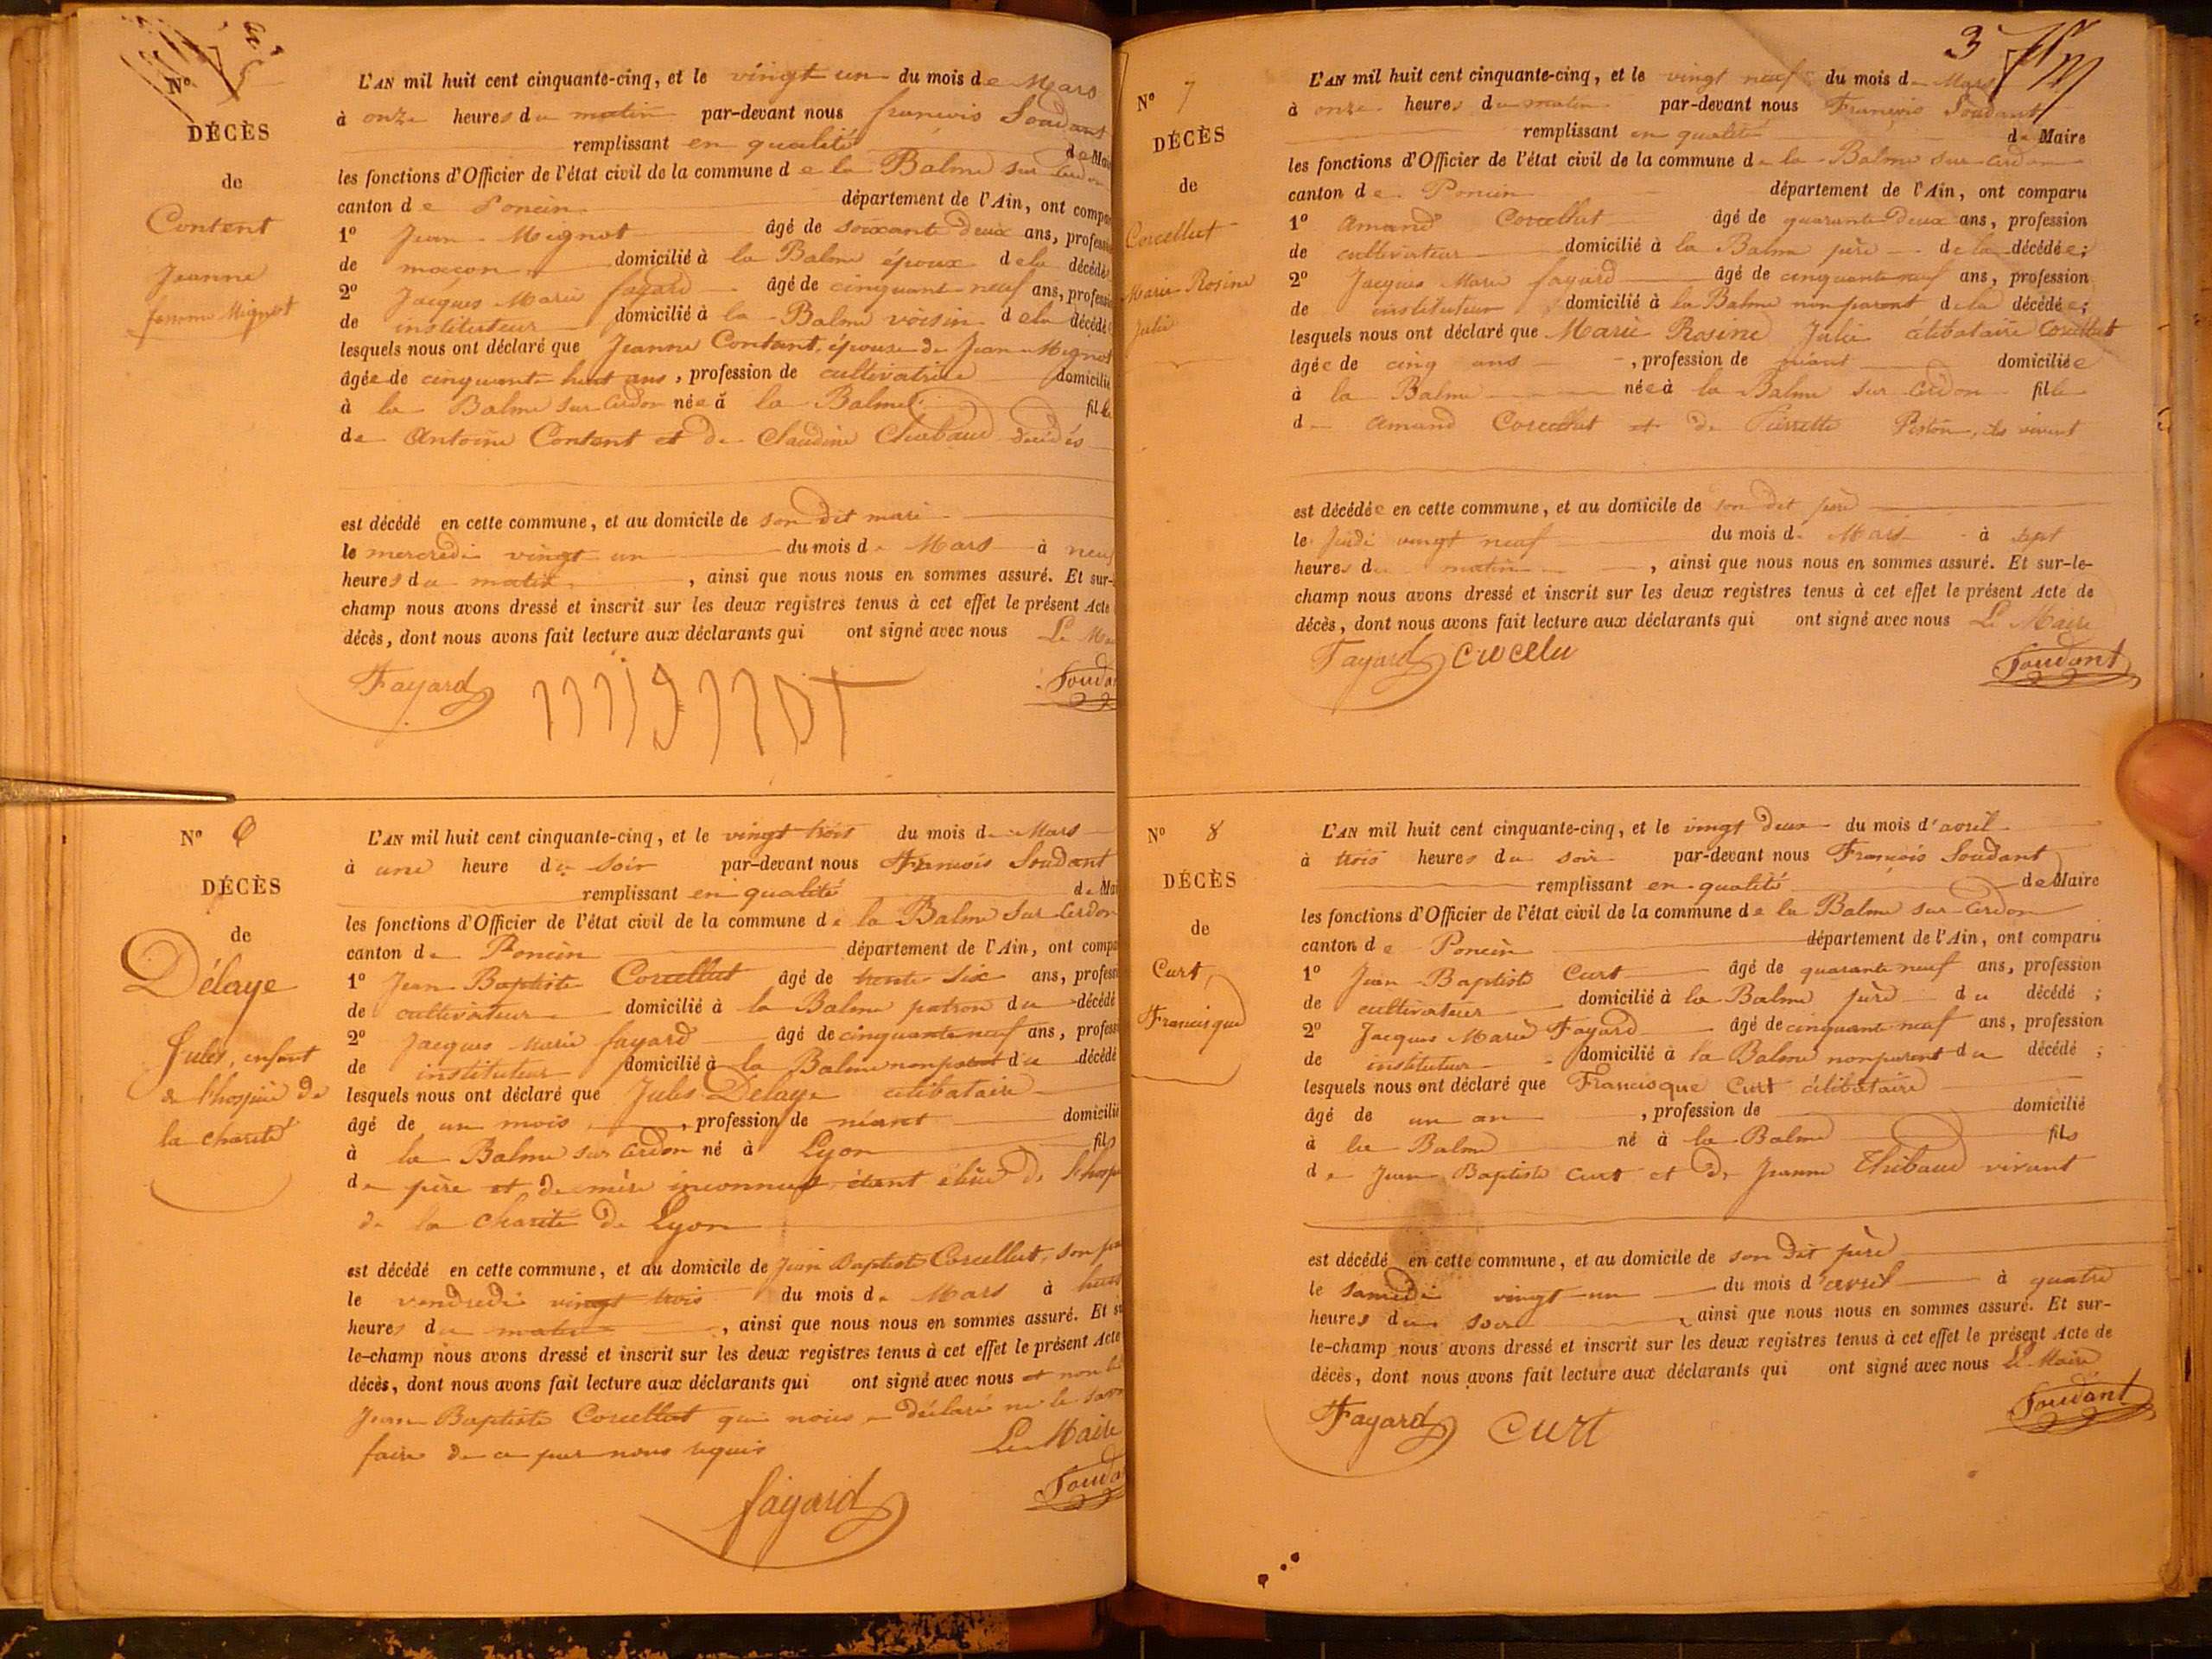 Nº 5
DÉCÈS
de
Content
Jeanne
femme Mignot
L'AN mil huit cent cinquante-cinq, et le vingt un du mois de Mars
à onze heures du matin par-devant nous françois Soudant
remplissant en qualité de Mai
les fonctions d'Officier de l'état civil de la commune de la Balme sur Cerdon
canton de Poncin département de l'Ain, ont compa
1º Jean Mignot âgé de soixante deux ans, profess
de maçon domicilié à la Balme époux de la décédé
2º Jacques Marie fayard âgé de cinquante neuf ans, profess
de instituteur domicilié à la Balme voisin de la décédé
lesquels nous ont déclaré que Jeanne Content, épouse de Jean Mignot
âgée de cinquante huit ans, profession de cultivatrice domicilié
à la Balme sur Cerdon née à la Balme fille
de Antoine Content et de Claudine décédés
est décédé en cette commune, et au domicile de son dit mari
le mercredi vingt un du mois de Mars à neuf
heures du matin, ainsi que nous nous en sommes assuré. Et sur-
champ nous avons dressé et inscrit sur les deux registres tenus à cet effet le présent Acte
décès, dont nous avons fait lecture aux déclarants qui ont signé avec nous Le Ma
Fayard mignot Souda
Nº 6
DÉCÈS
de
Délaye
Jules, enfant
de l'hospice de
la charité
L'AN mil huit cent cinquante-cinq, et le vingt trois du mois de Mars
à une heure du soir par-devant nous François Soudant
remplissant en qualité de Mai
les fonctions d'Officier de l'état civil de la commune de la Balme sur Cerdon
canton de Poncin département de l'Ain, ont compa
1º Jean Baptiste Corcellut âgé de trente six ans, profess
de cultivateur domicilié à la Balme patron du décédé
2º Jacques Marie fayard âgé de cinquante neuf ans, profess
de instituteur domicilié à la Balme non parent du décédé
lesquels nous ont déclaré que Jules Délaye célibataire
âgé de un mois, profession de néant domicilié
à la Balme sur Cerdon né à Lyon fils
de père et de mère inconnus, étant élève de l'hosp
de la charité de Lyon
est décédé en cette commune, et au domicile de Jean Baptiste Corcellut, son pa
le vendredi vingt trois du mois de Mars à huit
heures du matin, ainsi que nous nous en sommes assuré. Et s
le-champ nous avons dressé et inscrit sur les deux registres tenus à cet effet le présent Acte
décès, dont nous avons fait lecture aux déclarants qui ont signé avec nous et non le
Jean Baptiste Corcellut qui nous a déclaré ne le savo
faire de ce par nous requis Le Maire
fayard Souda
3
Nº 7
DÉCÈS
de
Corcellut
Marie Rosine
Julie
L'AN mil huit cent cinquante-cinq, et le vingt neuf du mois de Mars
à onze heures du matin par-devant nous François Soudant
remplissant en qualité de Maire
les fonctions d'Officier de l'état civil de la commune de la Balme sur Cerdon
canton de Poncin département de l'Ain, ont comparu
1º Amand Corcellut âgé de quarante deux ans, profession
de cultivateur domicilié à la Balme père de la décédée;
2º Jacques Marie fayard âgé de cinquante neuf ans, profession
de instituteur domicilié à la Balme non parent de la décédée;
lesquels nous ont déclaré que Marie Rosine Julie célibataire Corcellut
âgée de cinq ans, profession de néant domiciliée
à la Balme née à la Balme sur Cerdon fille
de Amand Corcellut et de Pierrette Piston, ils vivent
est décédée en cette commune, et au domicile de son dit père
le Jeudi vingt neuf du mois de Mars à sept
heures du matin, ainsi que nous nous en sommes assuré. Et sur-le-
champ nous avons dressé et inscrit sur les deux registres tenus à cet effet le présent Acte de
décès, dont nous avons fait lecture aux déclarants qui ont signé avec nous Le Maire
Fayard Soudant
Nº 8
DÉCÈS
de
Curt,
Francisque
L'AN mil huit cent cinquante-cinq, et le vingt deux du mois d'avril
à trois heures du soir par-devant nous François Soudant
remplissant en qualité de Maire
les fonctions d'Officier de l'état civil de la commune de la Balme sur Cerdon
canton de Poncin département de l'Ain, ont comparu
1º Jean Baptiste Curt âgé de quarante neuf ans, profession
de cultivateur domicilié à la Balme père du décédé ;
2º Jacques Marie Fayard âgé de cinquante neuf ans, profession
de instituteur domicilié à la Balme non parent du décédé ;
lesquels nous ont déclaré que Francisque Curt célibataire
âgé de un an, profession de domicilié
à la Balme né à la Balme fils
de Jean Baptiste Curt et de Jeanne Thibaud vivant
est décédé en cette commune, et au domicile de son dit père
le samedi vingt un du mois d'avril à quatre
heures du soir, ainsi que nous nous en sommes assuré. Et sur-
le-champ nous avons dressé et inscrit sur les deux registres tenus à cet effet le présent Acte de
décès, dont nous avons fait lecture aux déclarants qui ont signé avec nous Le Maire
Fayard Curt Soudant